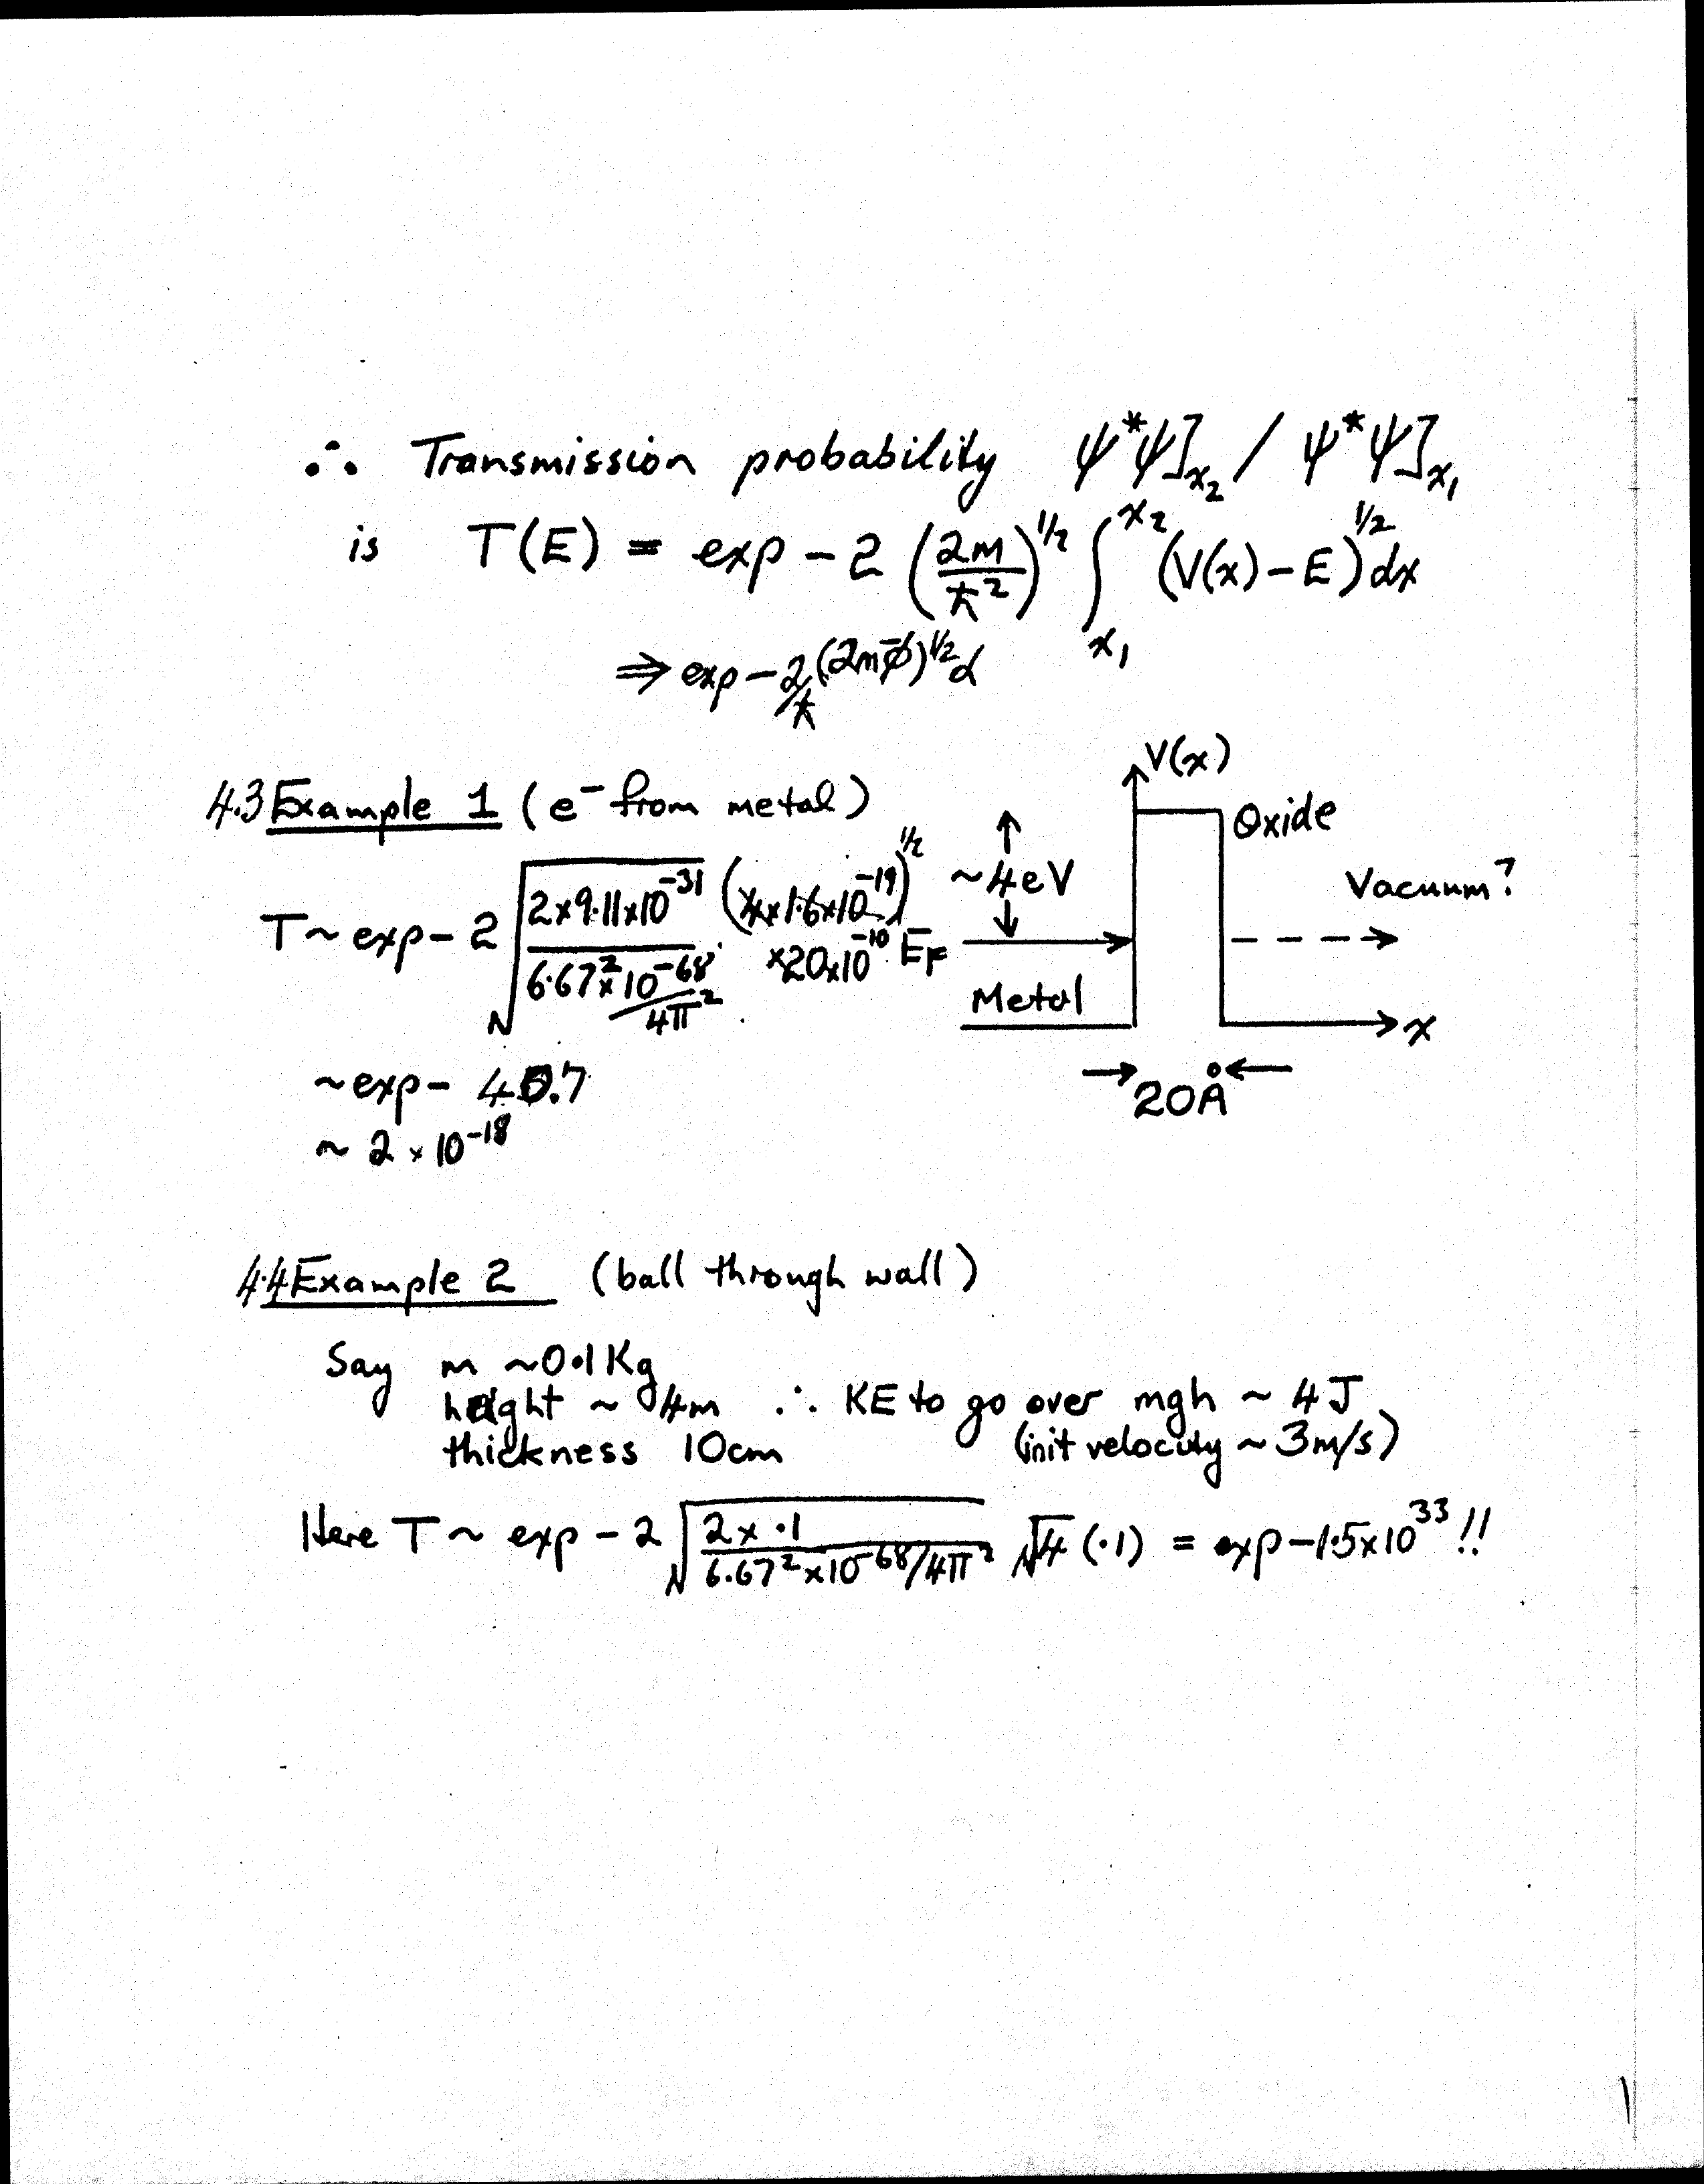 ∴ Transmission probability ψ*ψ]x₂ / ψ*ψ]x₁
is T(E) = exp − 2 (2m/ħ²)^1/2 ∫x₁^x₂ (V(x) − E)^1/2 dx
⇒ exp − 2/ħ (2mφ̄)^1/2 d
4.3 Example 1 (e⁻ from metal)
T ~ exp − 2 √(2×9.11×10⁻³¹ / (6.67²×10⁻⁶⁸/4π²)) (4×1.6×10⁻¹⁹)^1/2 ×20×10⁻¹⁰
~ exp − 40.7
~ 2 × 10⁻¹⁸
V(x)
Oxide
~4eV
Vacuum?
E_F
Metal
x
20Å
4.4 Example 2 (ball through wall)
Say m ~0.1Kg
height ~ 4m ∴ KE to go over mgh ~ 4J
thickness 10cm (init velocity ~ 3m/s)
Here T ~ exp − 2 √(2 × .1 / 6.67²×10⁻⁶⁸/4π²) √4 (.1) = exp −1.5×10³³ !!